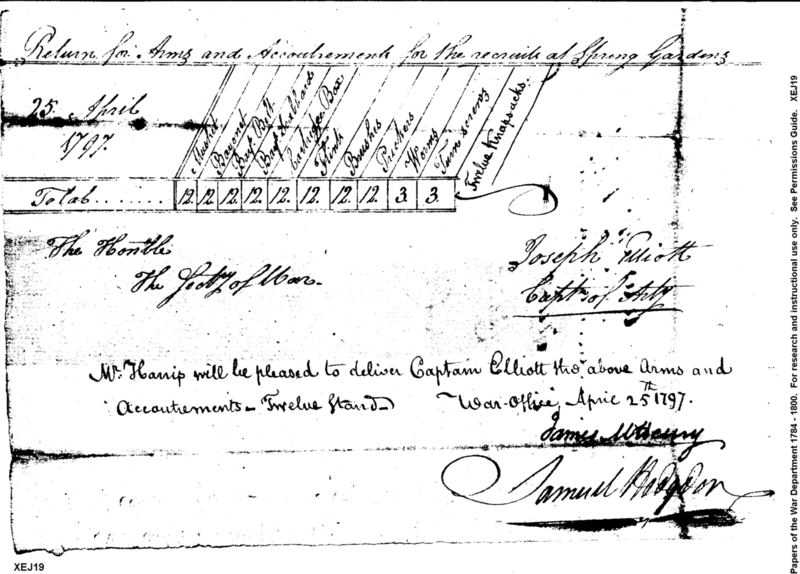 Return for Arms and Accoutrements for the recruits at Spring Gardens
25. April
1797.
Musket
Bayonet
Bayt Belt
Bayt Scabbards
Cartridge Box
Flints
Brushes
Prickers
Worms
Turn screws
Twelve Knapsacks.
Total........ 12. 12. 12. 12. 12. 12. 12. 12. 3. 3.
The Honble
The Secty of War.
Joseph Elliott
Captn of Arty
Mr. Harris will be pleased to deliver Captain Elliott the above Arms and
Accoutrements - Twelve Stand - War-Office, April 25th 1797.
James McHenry
Samuel Hodgdon
XEJ19
Papers of the War Department 1784 - 1800. For research and instructional use only. See Permissions Guide. XEJ19